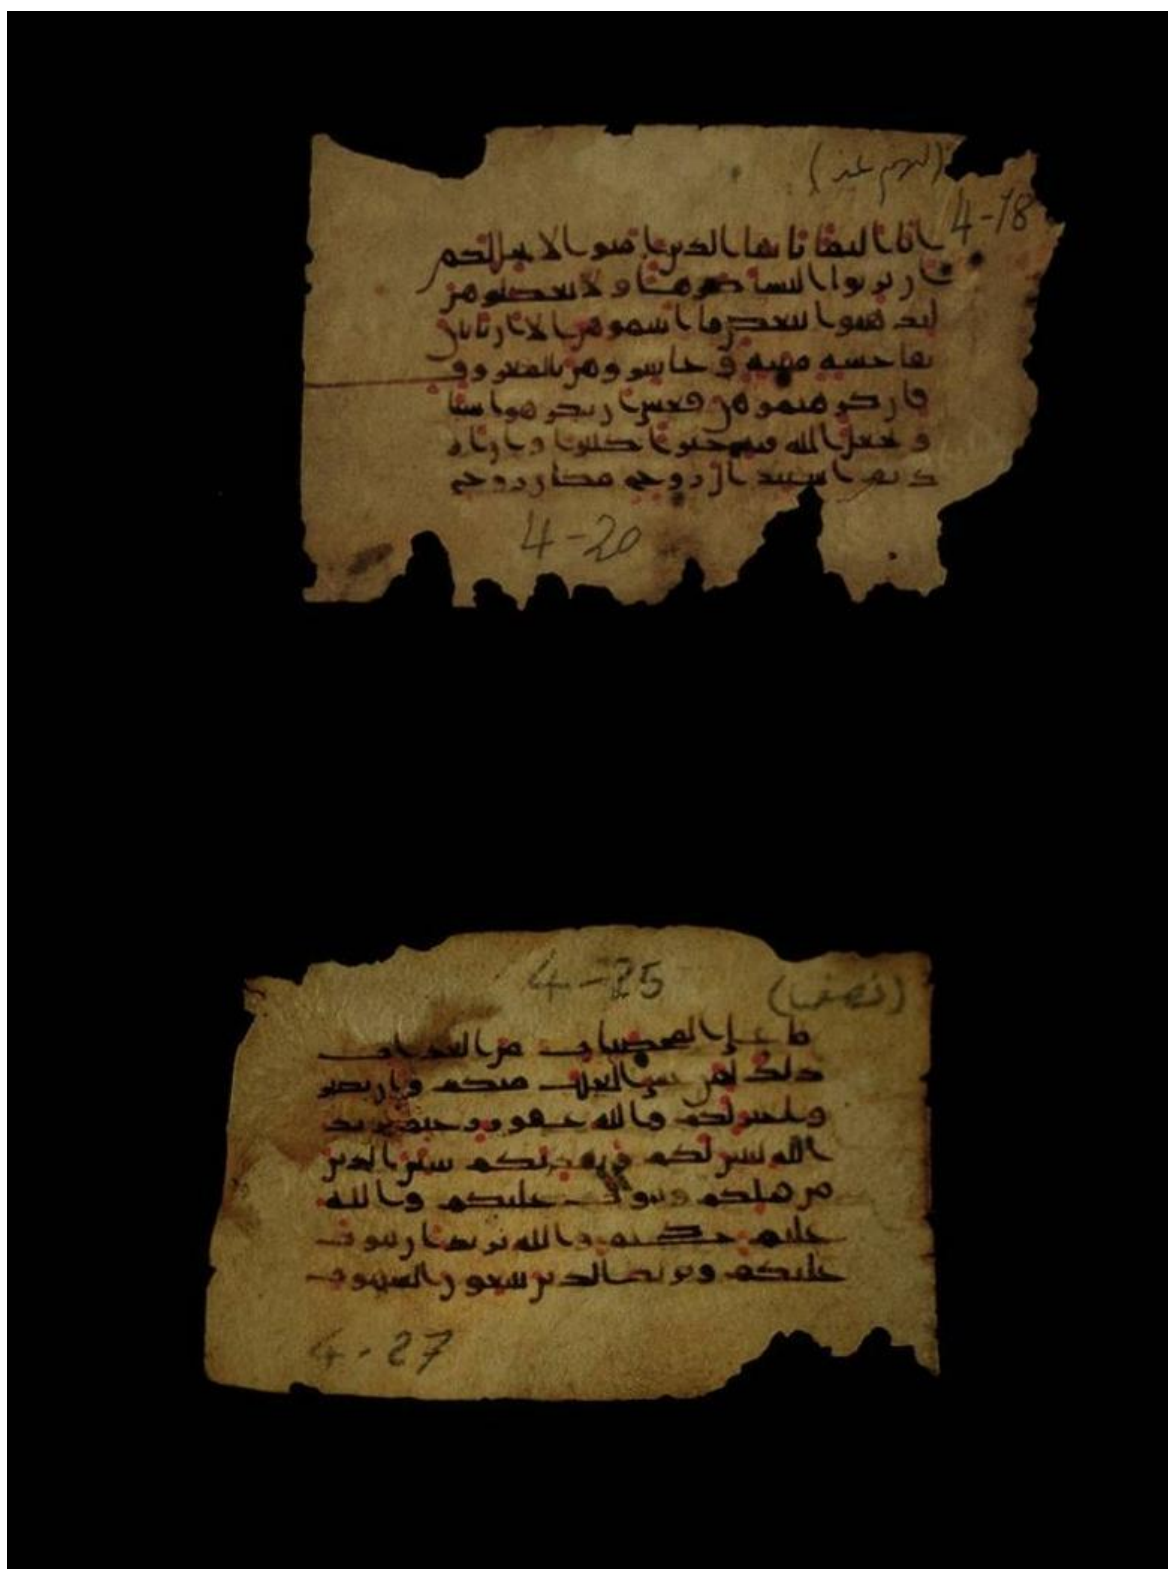 (لهم عذ)
4-18
ابا اليما يايها الذين امنوا لا يحل لكم
ان ترثوا النسا كرها ولا تعضلوهن
لتذهبوا ببعض ما اتيتموهن الا ان ياتين
بفاحشة مبينة وعاشروهن بالمعروف
فان كرهتموهن فعسى ان تكرهوا شيا
ويجعل الله فيه خيرا كثيرا وان ار
دتم استبدال زوج مكان زوج
4-20
4-25
(نصف ما)
على المحصنات من العذاب
ذلك لمن خشي العنت منكم وان تصبر
وا خير لكم والله غفور رحيم يريد
الله ليبين لكم ويهديكم سنن الذين
من قبلكم ويتوب عليكم والله
عليم حكيم والله يريد ان يتوب
عليكم ويريد الذين يتبعون الشهوات
4-27